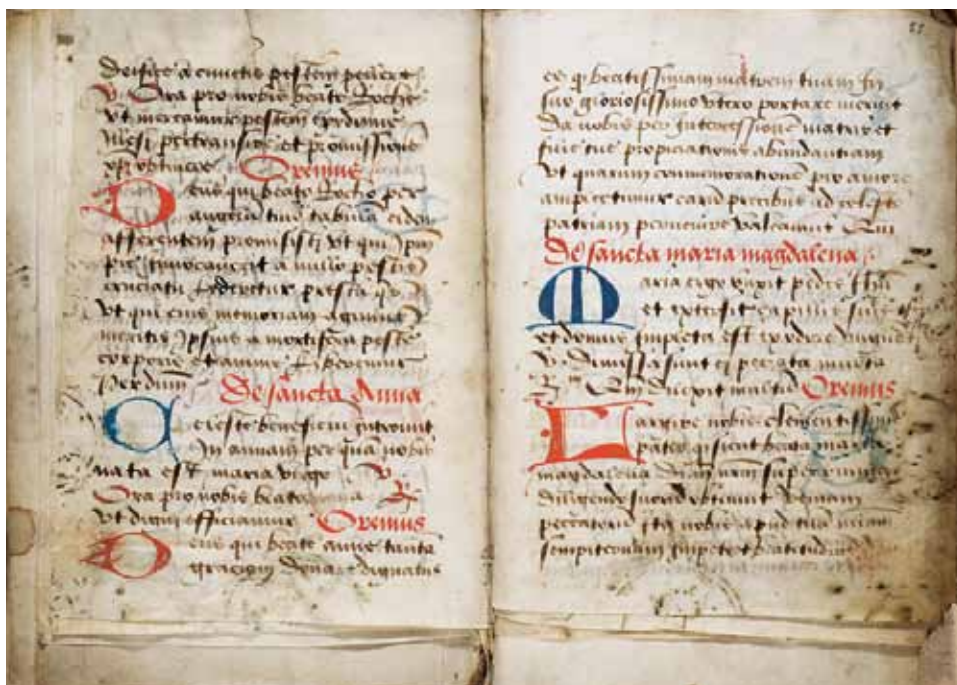 V. Ora pro nobis beate Roche
et promissione
Oremus
Deus qui beato Rocho per
angelum tuum tabula eidem
afferentem promisisti ut qui ipm
pie invocaverit a nullo pestis
cruciatu lederetur presta qs
ut qui eius memoriam agimus
meritis ipsius a mortifera peste
corporis et anime liberemur
Per dum
De sancta Anna
Celeste beneficium introivit
In annam per quam nobis
nata est maria virgo V.
Ora pro nobis beata anna R.
ut digni efficiamur Oremus
Deus qui beate anne tantam
graciam donare dignatus
21
es qi beatissimam matrem tuam In
suo gloriosissimo utero portare meruit
Da nobis per Intercessione matris et
filie tue propiciationis abundantiam
ut quarum commemoratione pio amore
amplectimur earum precibus ad celeste
patriam pervenire valeamus Qui
De sancta maria magdalena
Maria ergo unxit pedes Ihu
et extersit capillis suis
et domus impleta est ex odore unguet
V. Dimissa sunt ei peccata multa
R. Qm dilexit multu Oremus
Largire nobis clementissime
pater qi sicut beata maria
magdalena
diligendo
peccatorum ita nobis apud tua miam
sempiternam Impetret beatitudine